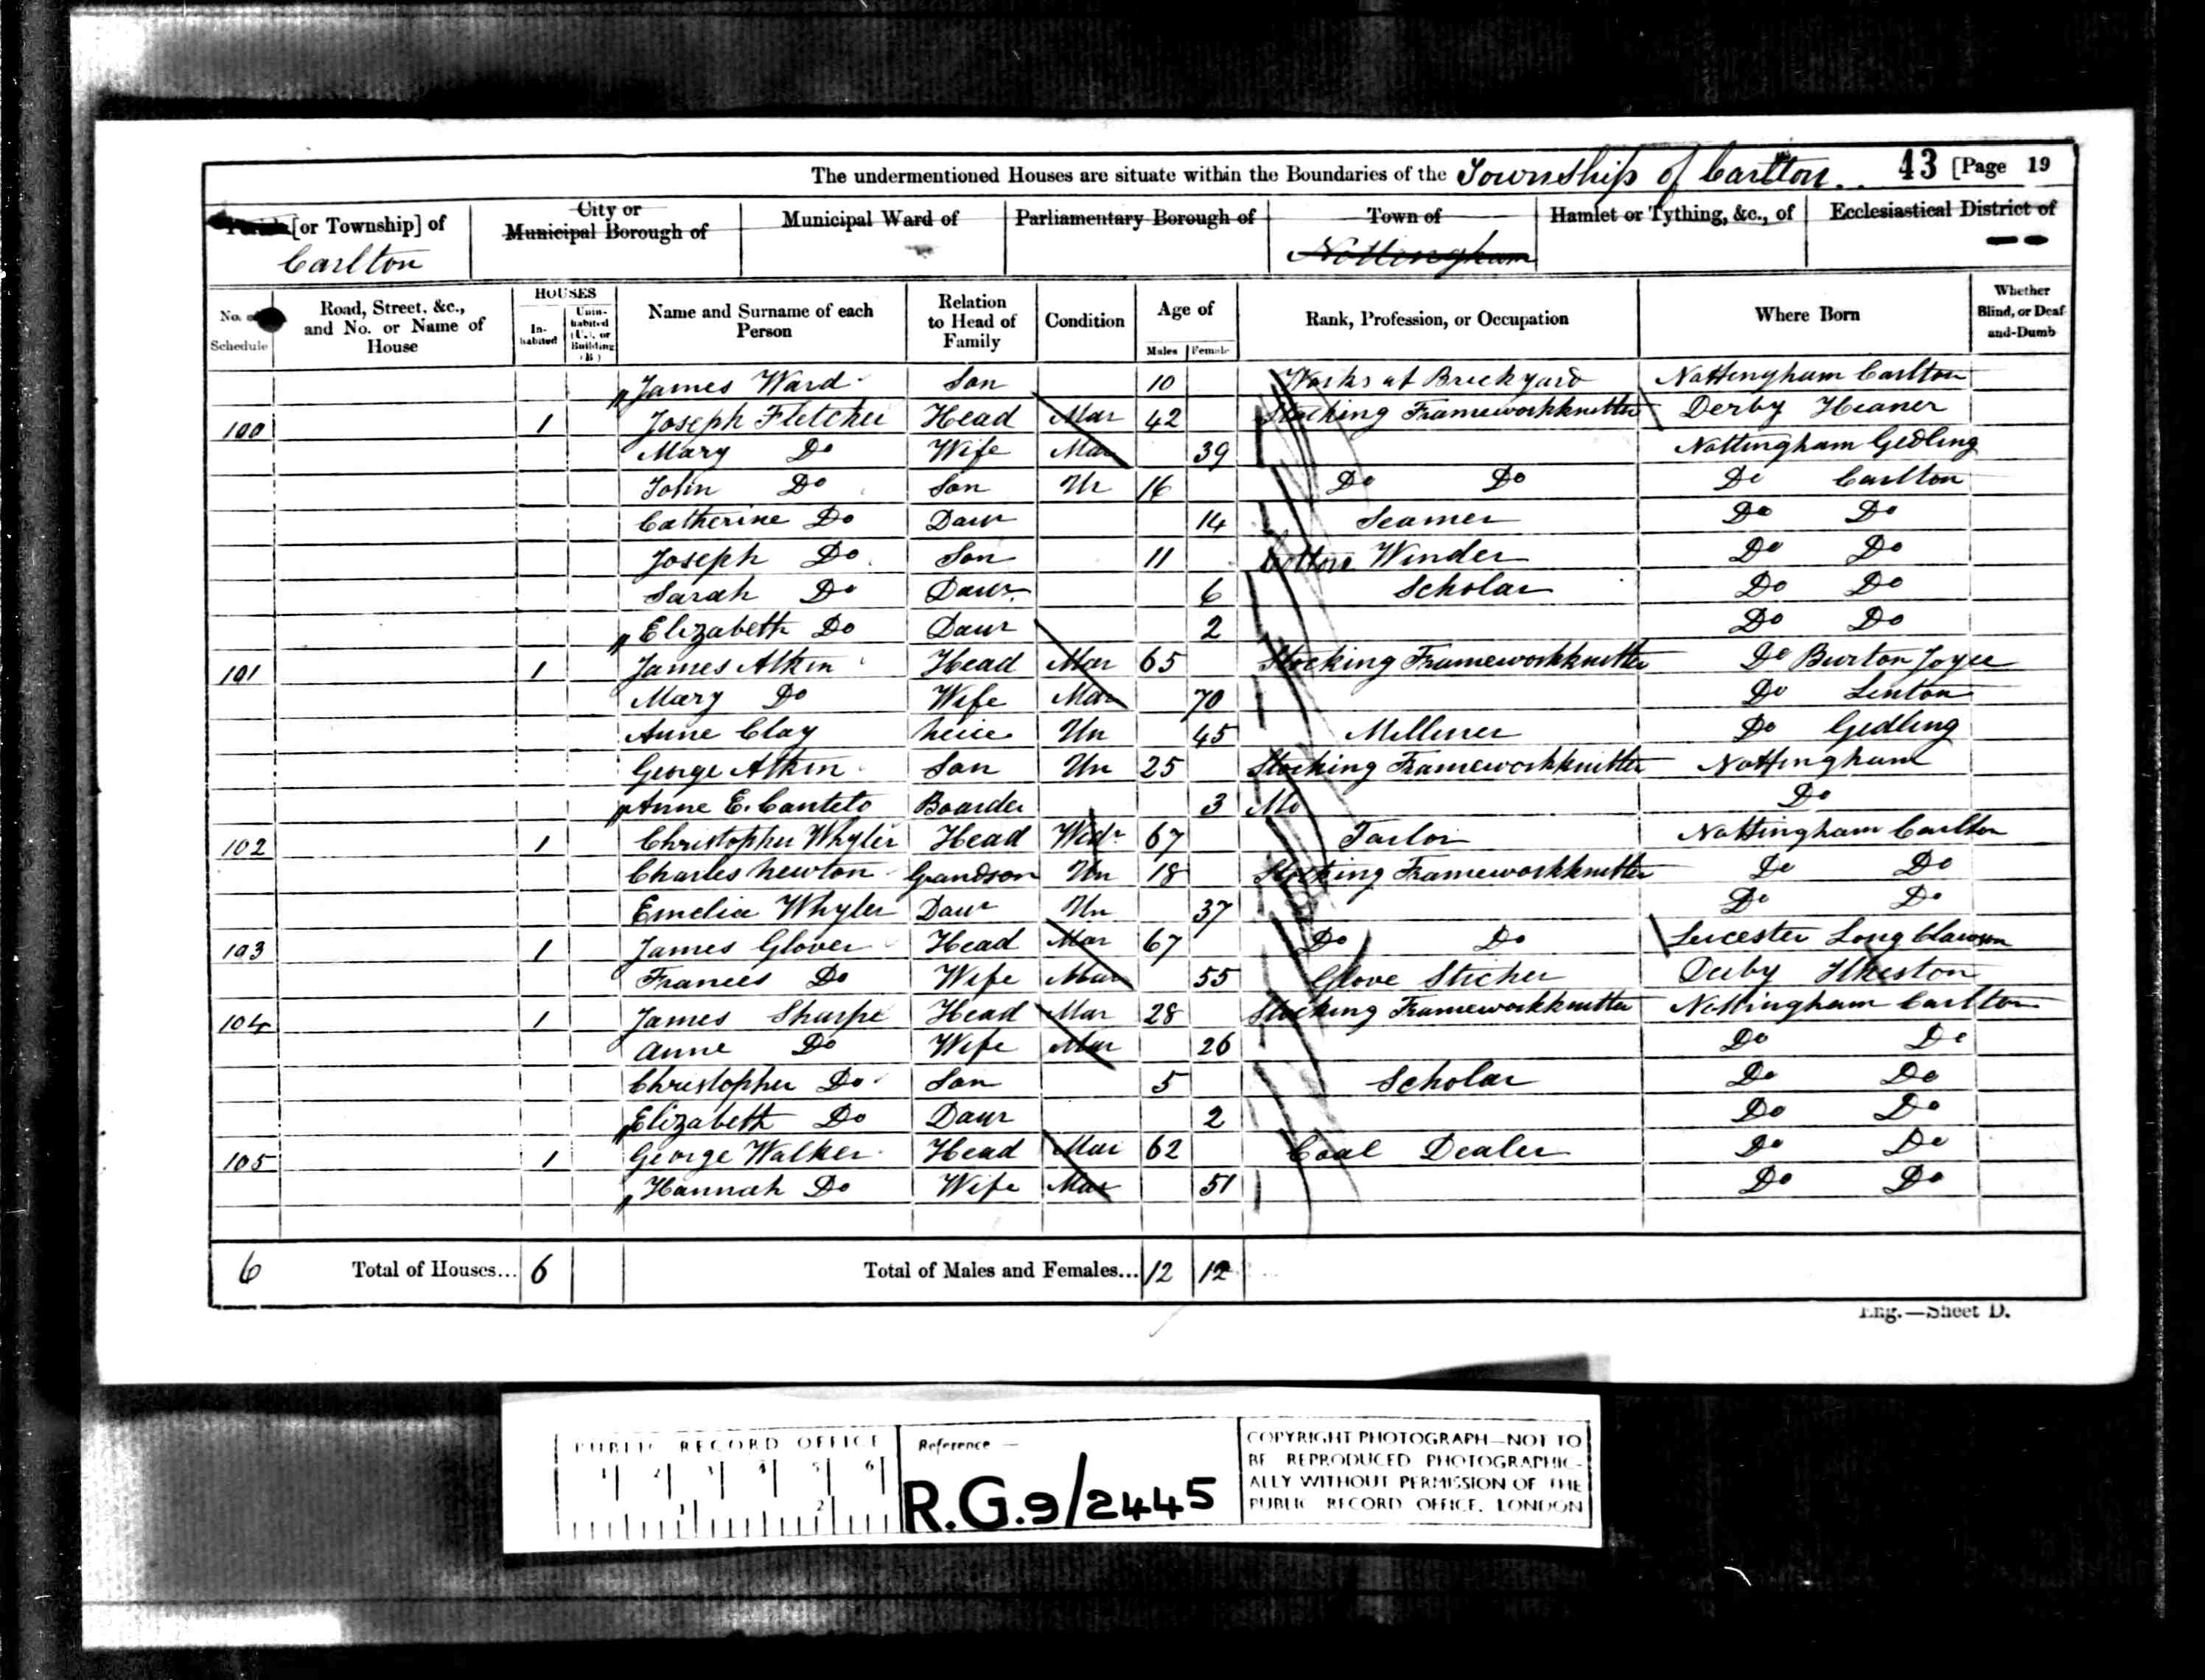 The undermentioned Houses are situate within the Boundaries of the Township of Carlton 43 [Page 19
[or Township] of City or Municipal Borough of Municipal Ward of Parliamentary Borough of Town of Hamlet or Tything, &c., of Ecclesiastical District of
Carlton Nottingham
No. of Schedule Road, Street, &c., and No. or Name of House HOUSES Inhabited Uninhabited (U.), or Building (B.) Name and Surname of each Person Relation to Head of Family Condition Age of Males Females Rank, Profession, or Occupation Where Born Whether Blind, or Deaf-and-Dumb
James Ward Son 10 Works at Brickyard Nottingham Carlton
100 1 Joseph Fletcher Head Mar 42 Stocking Frameworkknitter Derby Heaner
Mary Do Wife Mar 39 Nottingham Gedling
John Do Son Un 16 Do Do Do Carlton
Catherine Do Daur 14 Seamer Do Do
Joseph Do Son 11 Cotton Winder Do Do
Sarah Do Daur 6 Scholar Do Do
Elizabeth Do Daur 2 Do Do
101 1 James Atkin Head Mar 65 Stocking Frameworkknitter Do Burton Joyce
Mary Do Wife Mar 70 Do Linton
Anne Clay Neice Un 45 Milliner Do Gedling
George Atkin Son Un 25 Stocking Frameworkknitter Nottingham
Anne E. Boarder 3 Do
102 1 Christopher Whyler Head Widr 67 Tailor Nottingham Carlton
Charles Newton Grandson Un 18 Stocking Frameworkknitter Do Do
Emelia Whyler Daur Un 37 Do Do
103 1 James Glover Head Mar 67 Do Do Leicester Long Clawson
Frances Do Wife Mar 55 Glove Sticher Derby Ilkeston
104 1 James Sharpe Head Mar 28 Stocking Frameworkknitter Nottingham Carlton
Anne Do Wife Mar 26 Do Do
Christopher Do Son 5 Scholar Do Do
Elizabeth Do Daur 2 Do Do
105 1 George Walker Head Mar 62 Coal Dealer Do Do
Hannah Do Wife Mar 51 Do Do
6 Total of Houses... 6 Total of Males and Females... 12 12
Eng.—Sheet D.
PUBLIC RECORD OFFICE
1 2 3 4 5 6
1 2
Reference —
R.G.9/2445
COPYRIGHT PHOTOGRAPH—NOT TO
BE REPRODUCED PHOTOGRAPHIC-
ALLY WITHOUT PERMISSION OF THE
PUBLIC RECORD OFFICE, LONDON